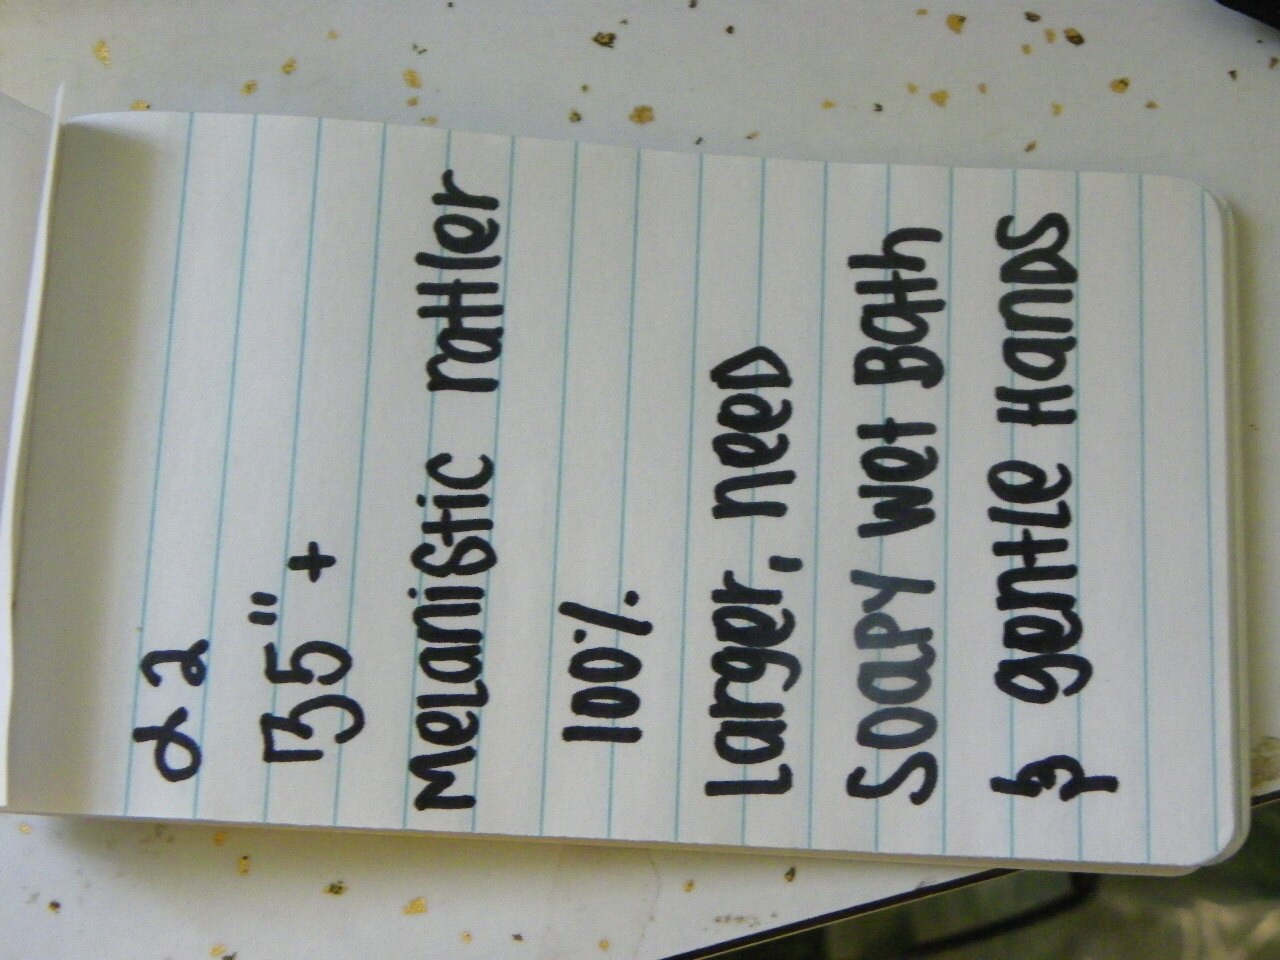 22
35"+
Melanistic rattler
100%
Larger, need
Soapy wet Bath
& gentle Hands